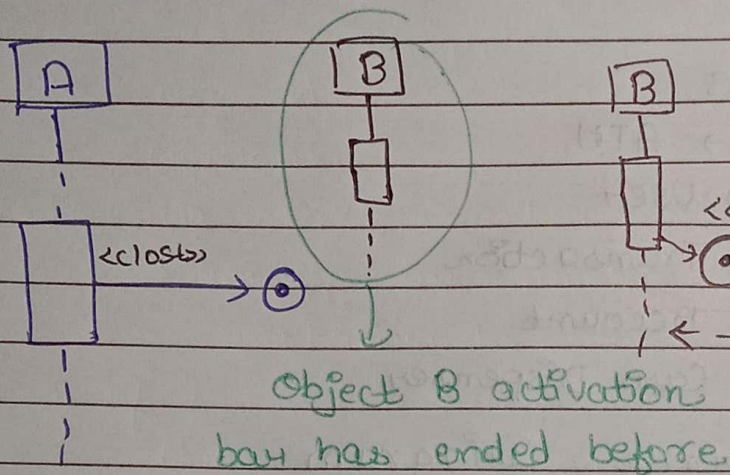 A
B
B
<<close>>
<<
Object B activation
bar has ended before